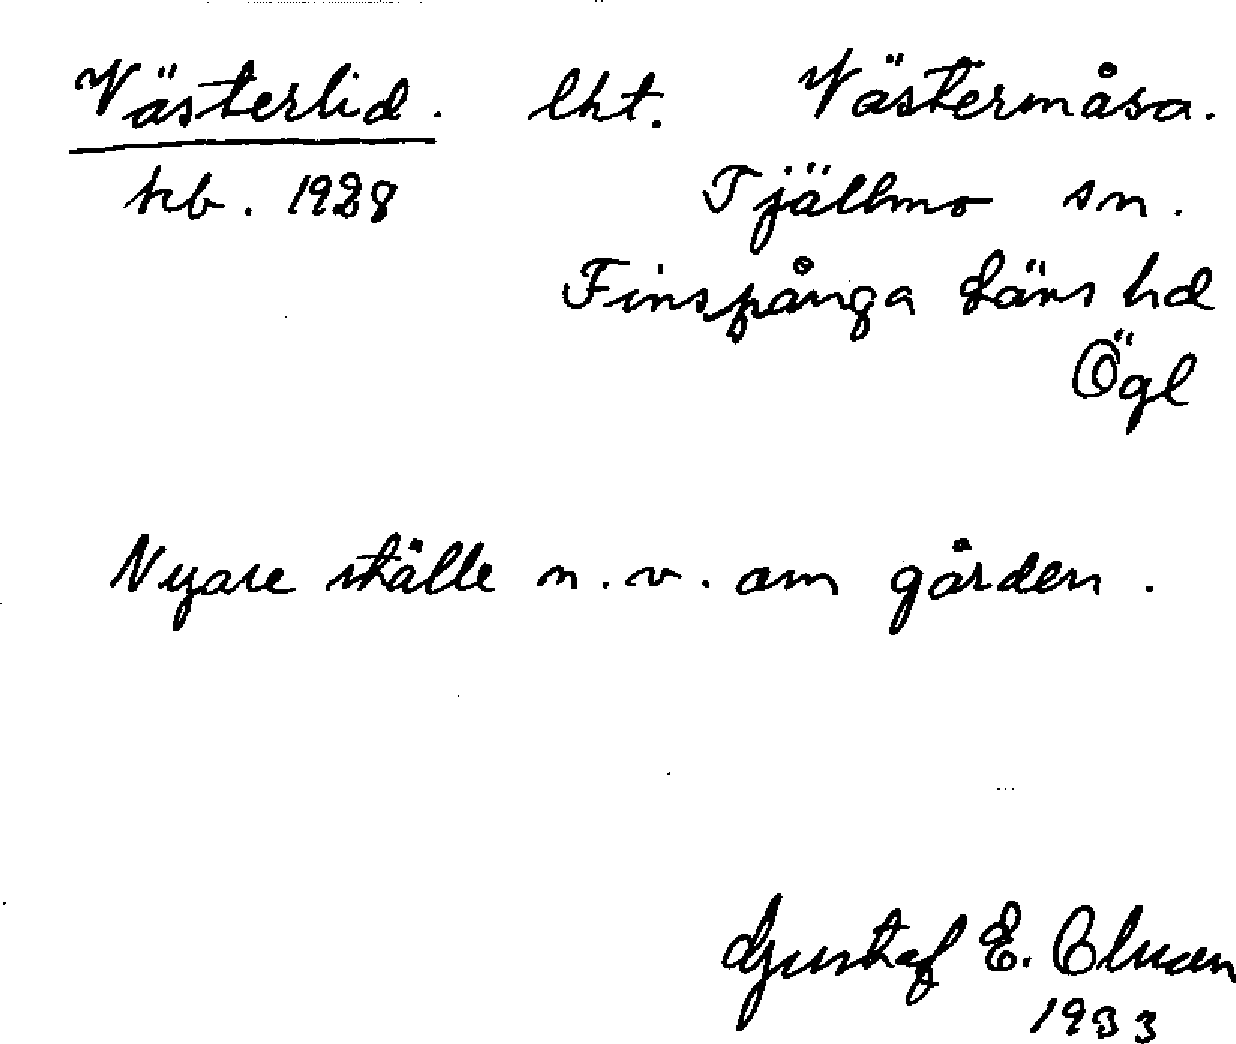 Västerlid. lht. Västermåsa.
kb. 1928 Tjällmo sn.
Finspånga läns hd
Ögl
Nyare ställe n.v. om gården.
Gustaf E.
1933